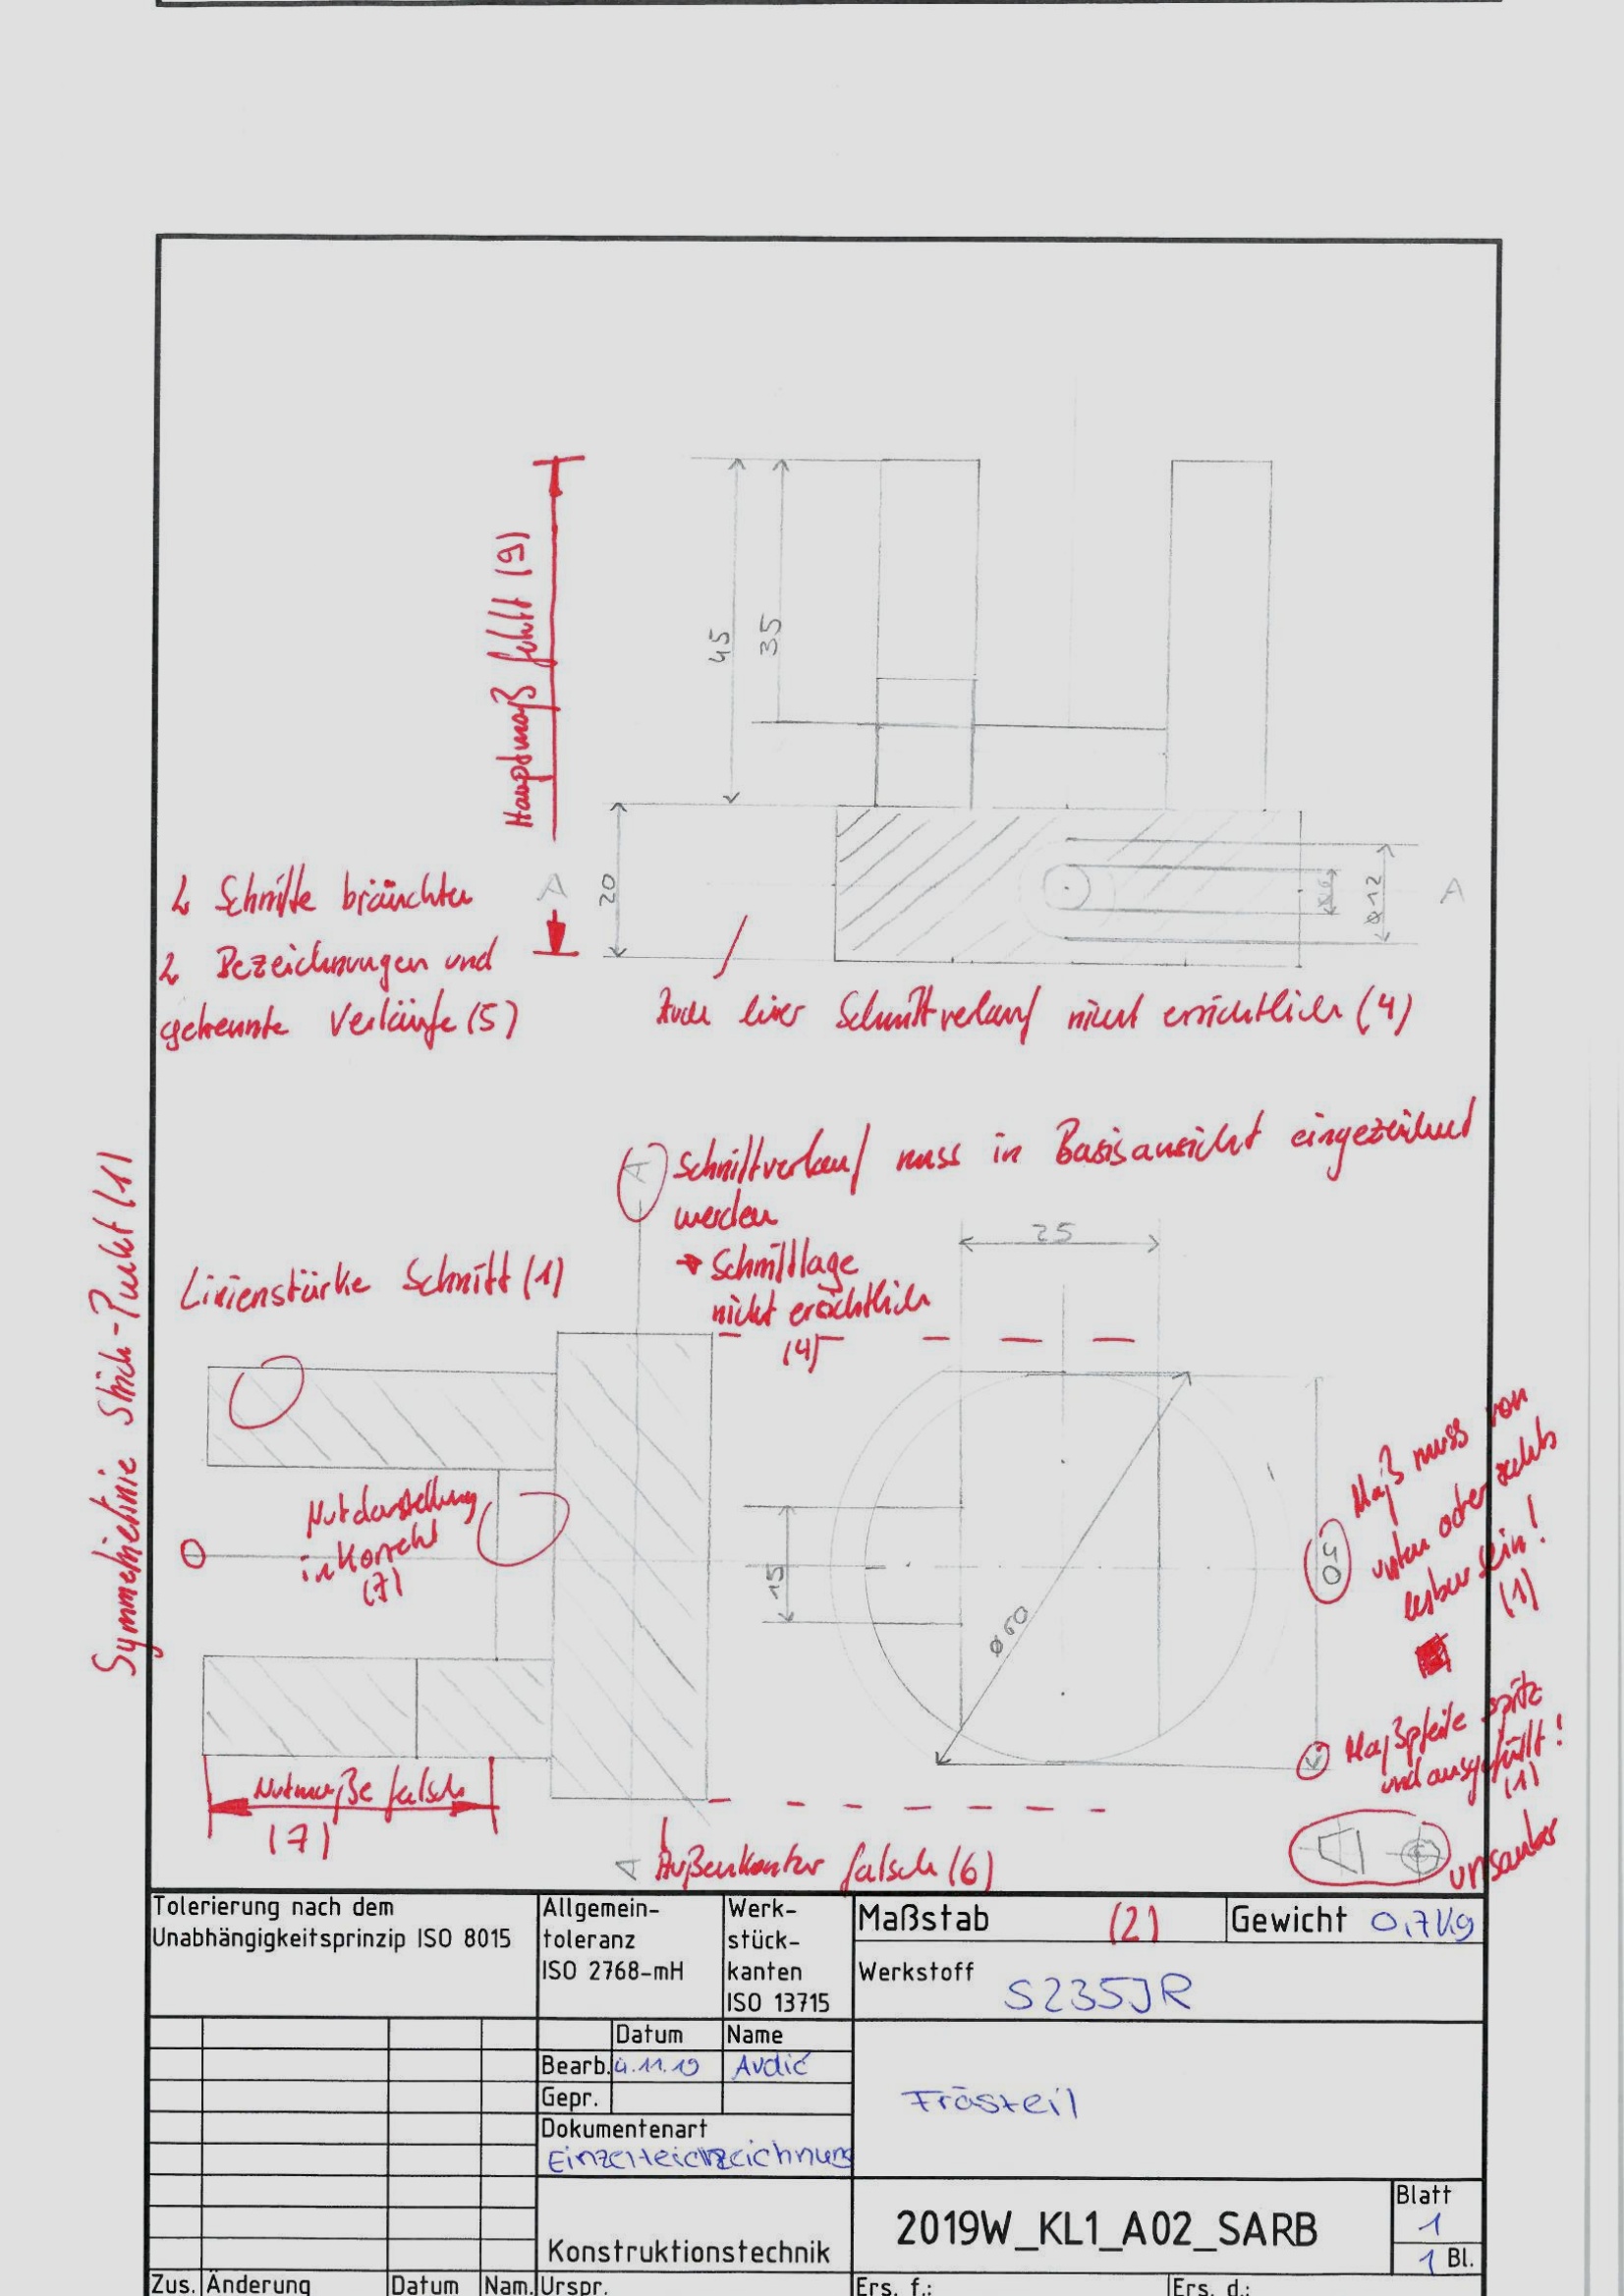 Hauptmaß fehlt (9)
45
35
20
A
⌀12
A
2 Schnitte bräuchten
2 Bezeichnungen und
getrennte Verläufe (5)
Auch hier Schnittverlauf nicht ersichtlich (4)
A
Schnittverlauf muss in Basisansicht eingezeichnet
werden
→ Schnittlage
nicht ersichtlich
(4)
Symmetrielinie Strich-Punkt (1)
Linienstärke Schnitt (1)
25
Nutdarstellung
inkorrekt
(7)
15
⌀60
50
Maß muss von
unten oder rechts
lesbar sein!
(1)
Maßpfeile spitz
und ausgefüllt!
(1)
Nutmaße falsch
(7)
A
Außenkontur falsch (6)
unsauber
Tolerierung nach dem
Unabhängigkeitsprinzip ISO 8015
Allgemein-
toleranz
ISO 2768-mH
Werk-
stück-
kanten
ISO 13715
Maßstab (2)
Gewicht 0,7kg
Werkstoff
S235JR
Datum Name
Bearb. 4.11.19 Avdić
Gepr.
Dokumentenart
Frästeil
Konstruktionstechnik
2019W_KL1_A02_SARB
Blatt
1
1 Bl.
Zus. Änderung Datum Nam. Urspr. Ers. f.: Ers. d.: